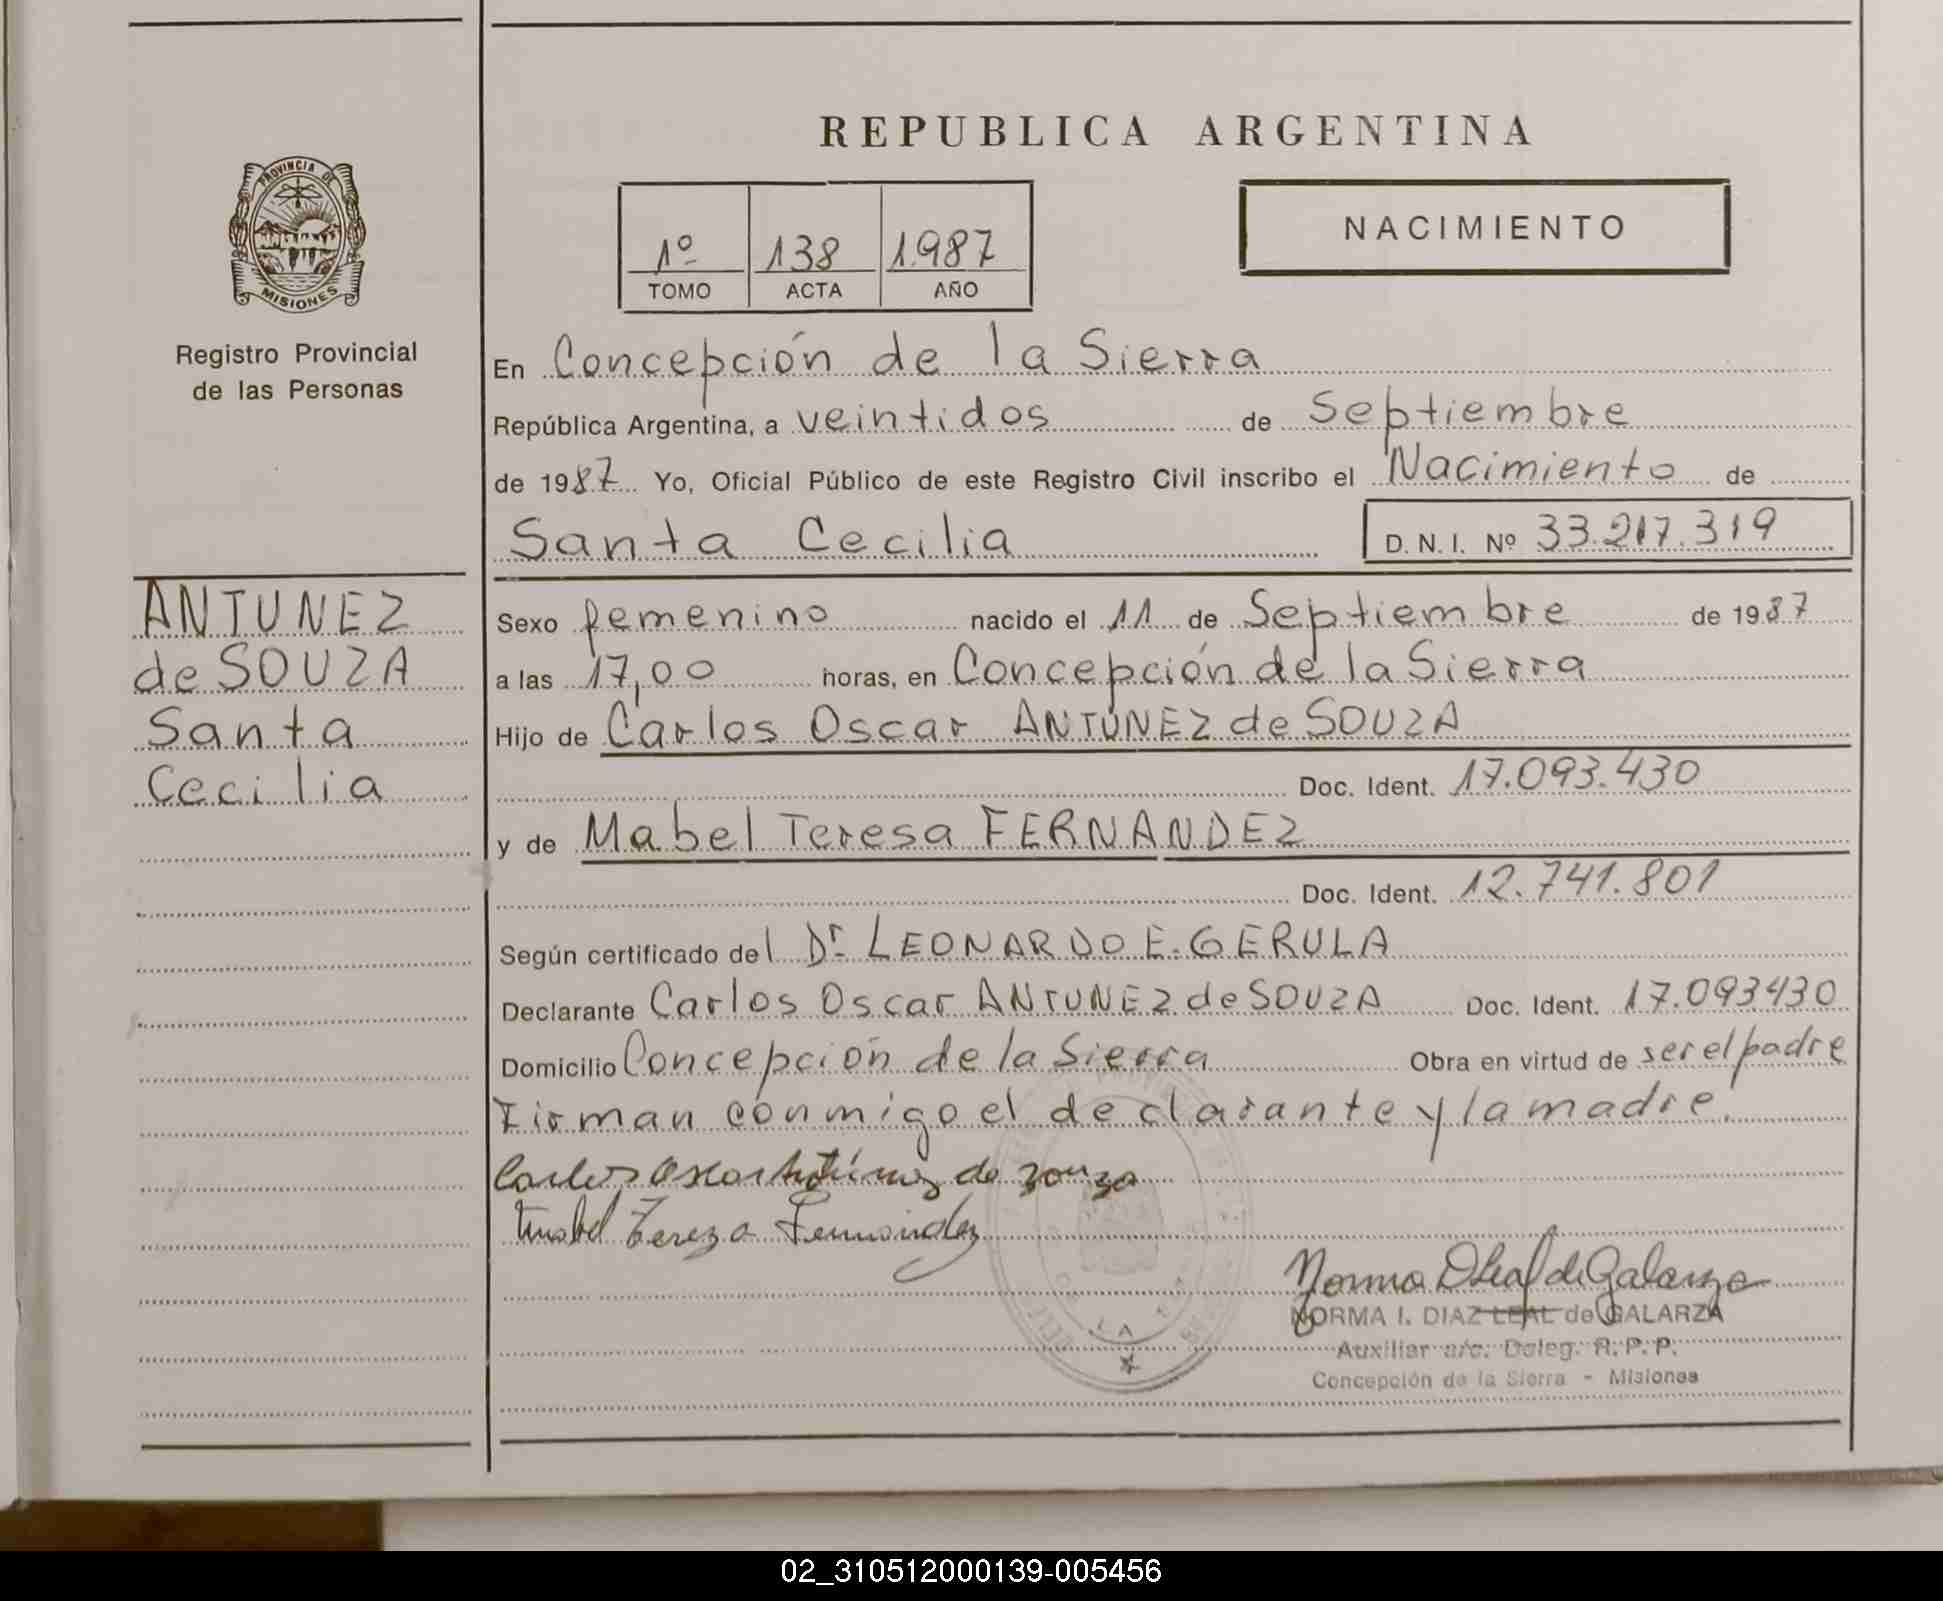 REPUBLICA ARGENTINA
PROVINCIA DE
MISIONES
Registro Provincial
de las Personas
NACIMIENTO
1º 138 1987
TOMO ACTA AÑO
En Concepción de la Sierra
República Argentina, a veintidos de Septiembre
de 1987 Yo, Oficial Público de este Registro Civil inscribo el Nacimiento de
Santa Cecilia D. N. I. Nº 33.217.319
ANTUNEZ
de SOUZA
Santa
Cecilia
Sexo femenino nacido el 11 de Septiembre de 1987
a las 17,00 horas, en Concepción de la Sierra
Hijo de Carlos Oscar ANTUNEZ de SOUZA
Doc. Ident. 17.093.430
y de Mabel Teresa FERNANDEZ
Doc. Ident. 12.741.801
Según certificado del Dr. LEONARDO E. GERULA
Declarante Carlos Oscar ANTUNEZ de SOUZA Doc. Ident. 17.093430
Domicilio Concepción de la Sierra Obra en virtud de ser el padre
Firman conmigo el declarante y la madre.
Carlos Oscar Antúnez de Souza
Mabel Tereza Fernández
Norma D Leal de Galarza
NORMA I. DIAZ LEAL de GALARZA
Auxiliar a/c. Deleg. R. P. P.
Concepción de la Sierra - Misiones
02_310512000139-005456